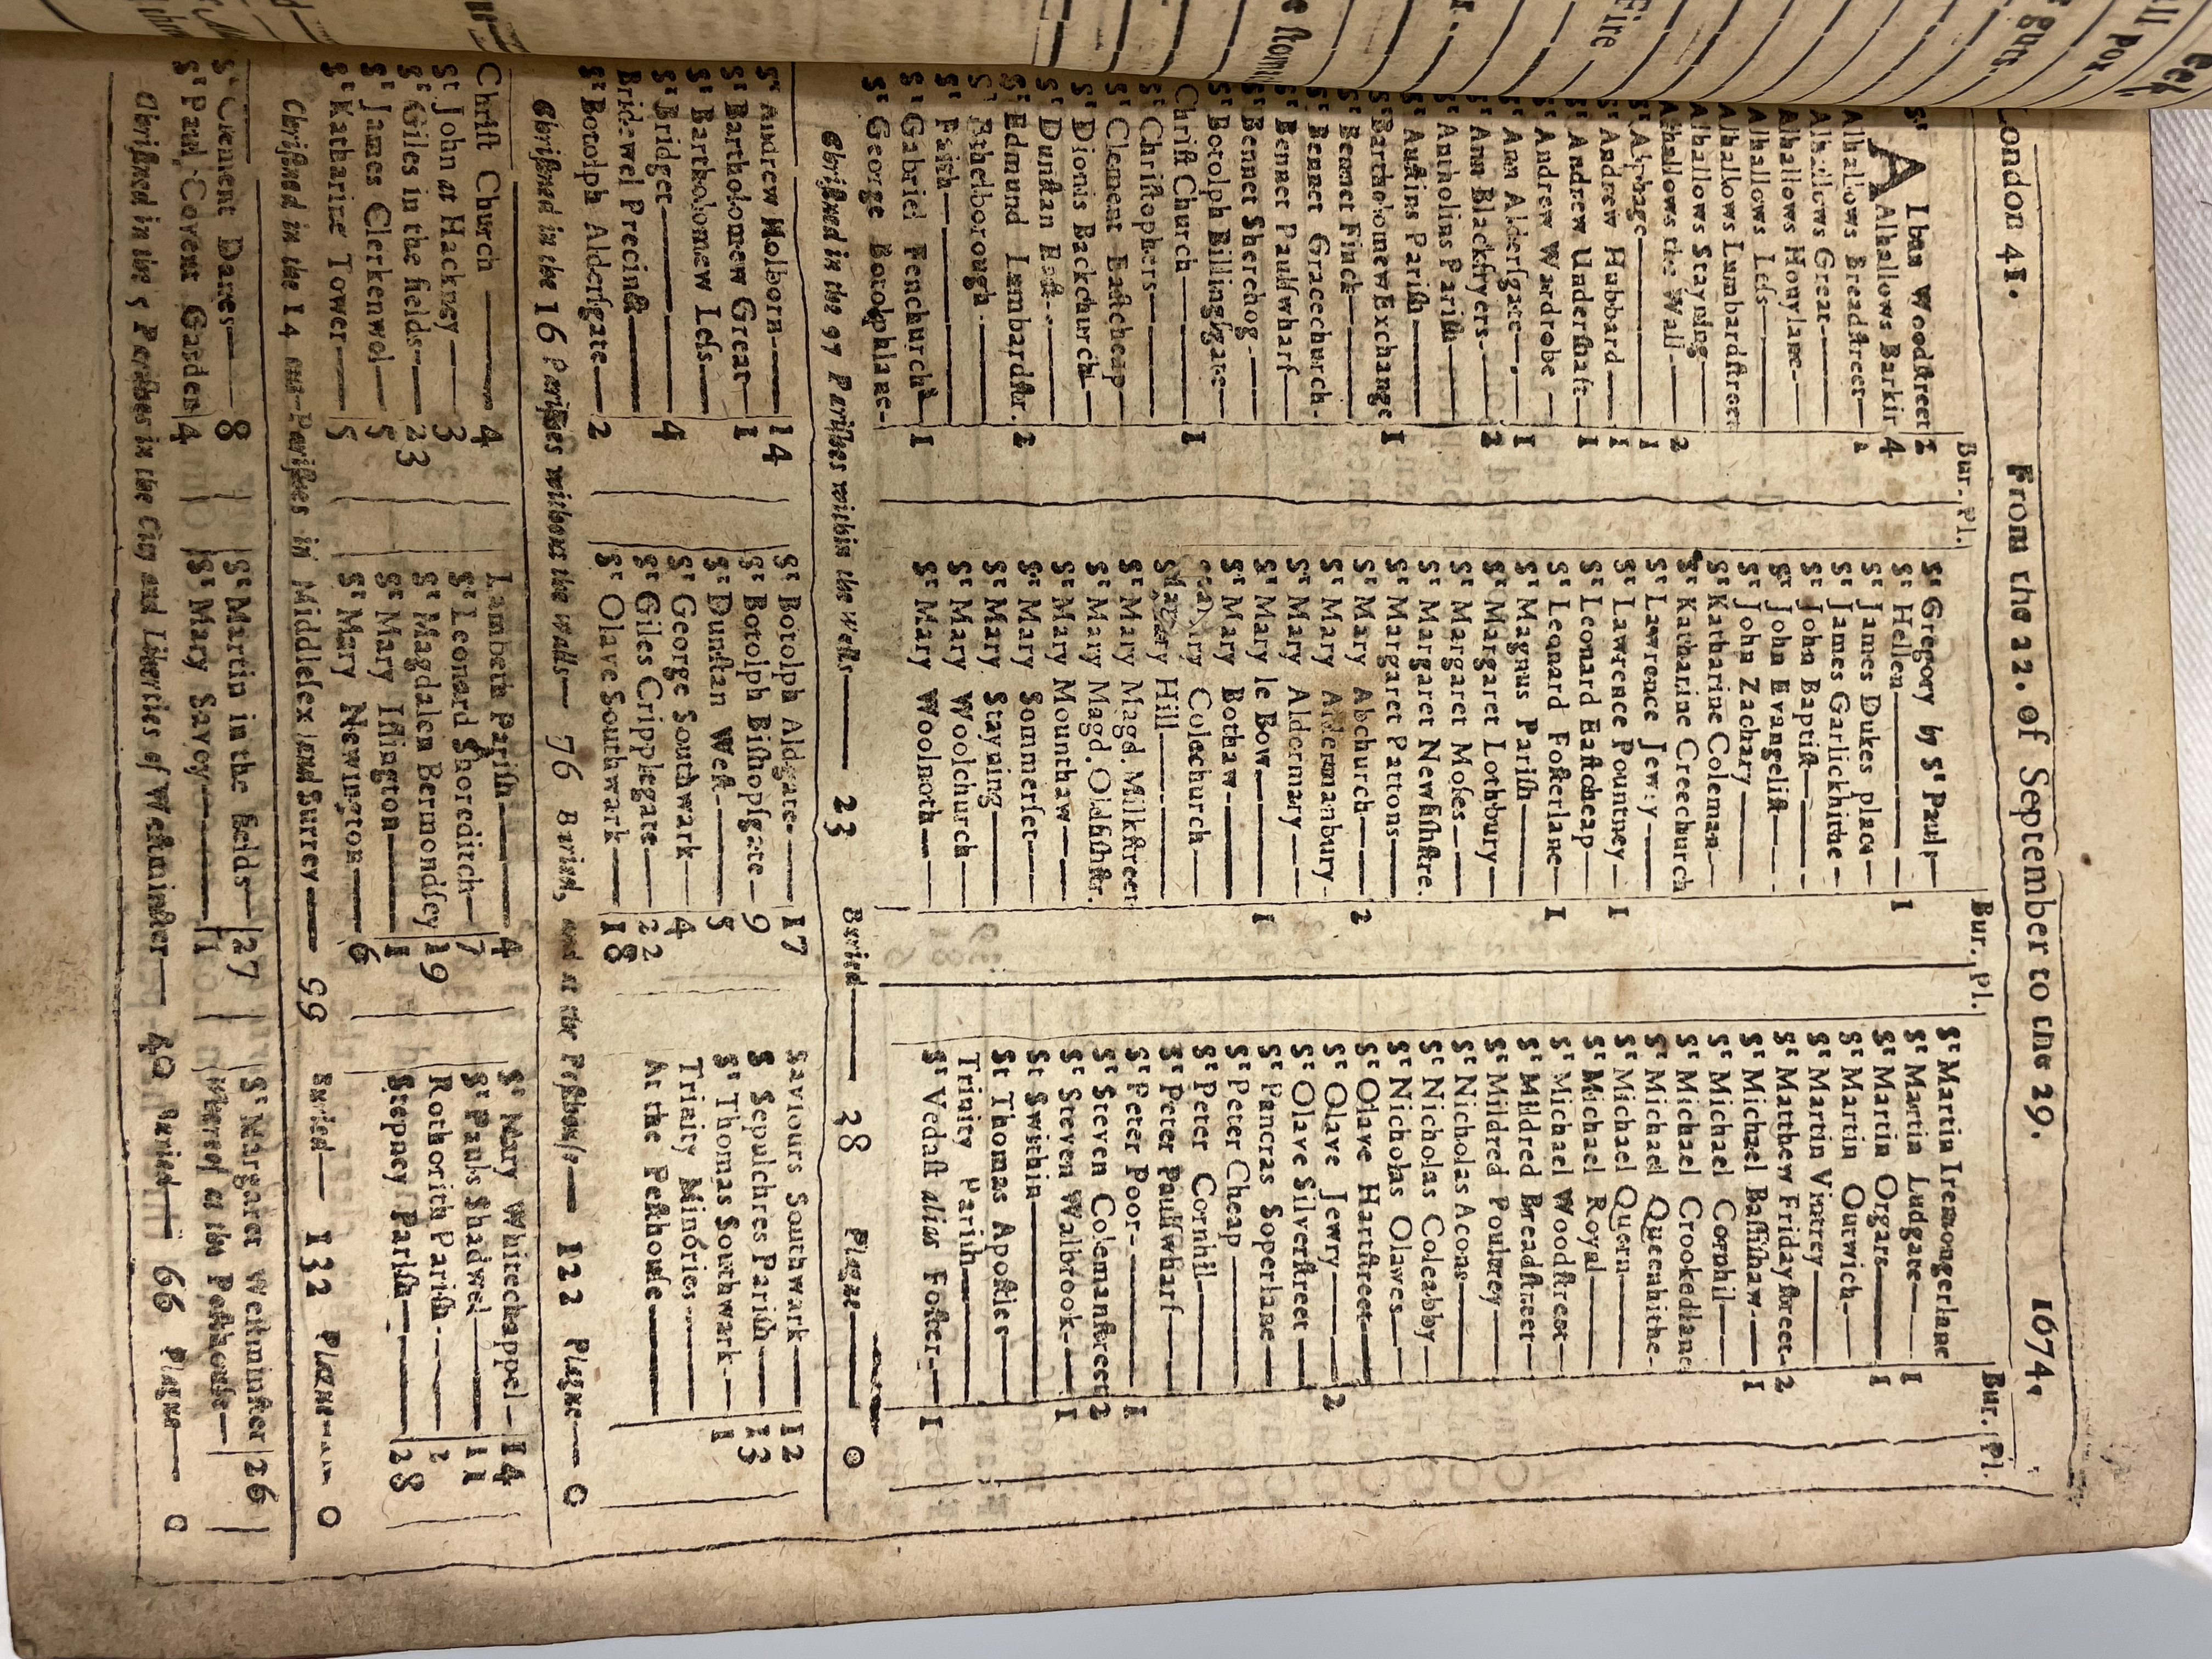 London 41. From the 22. of September to the 29. 1674.
Bur. Pl.
St ALban Woodstreet
Alhallows Barkin 4
Alhallows Breadstreet— 1
Alhallows Great——
Alhallows Honylane—
Alhallows Less——
Alhallows Lumbardstreet
Alhallows Stayning——
Alhallows the Wall—— 2
St Alphage—— 1
St Andrew Hubbard—— 1
St Andrew Undershaft— 1
St Andrew Wardrobe—
St Ann Aldersgate— 1
St Ann Blackfryers— 2
St Antholins Parish——
St Austins Parish——
St Bartholomew Exchange 1
St Bennet Finck——
St Bennet Gracechurch-
St Bennet Paulswharf—
St Bennet Sherehog-—
St Botolph Billingsgate—
Christ Church—— 1
St Christophers——
St Clement Eastcheap—
St Dionis Backchurch—
St Dunstan East-—
St Edmund Lumbardstr. 1
St Ethelborough——
St Faith——
St Gabriel Fenchurch— 1
St George Botolphlane-
Bur. Pl.
St Gregory by St Pauls—
St Hellen—— 1
St James Dukes place—
St James Garlickhithe—
St John Baptist——
St John Evangelist—
St John Zachary——
St Katharine Coleman—
St Katharine Creechurch
St Lawrence Jewry——
St Lawrence Pountney— 1
St Leonard Eastcheap—
St Leonard Fosterlane— 1
St Magnus Parish——
St Margaret Lothbury—
St Margaret Moses——
St Margaret Newfishstre.
St Margaret Pattons——
St Mary Abchurch— 2
St Mary Aldermanbury-
St Mary Aldermary—
St Mary le Bow—— 1
St Mary Bothaw——
St Mary Colechurch—
St Mary Hill——
St Mary Magd. Milkstreet
St Mary Magd. Oldfishstr.
St Mary Mounthaw——
St Mary Sommerset—
St Mary Stayning——
St Mary Woolchurch—
St Mary Woolnoth——
Bur. Pl.
St Martin Iremongerlane
St Martin Ludgate—— 1
St Martin Orgars—— 1
St Martin Outwich—
St Martin Vintrey——
St Matthew Fridaystreet- 2
St Michael Bassishaw-— 1
St Michael Cornhil——
St Michael Crookedlane
St Michael Queenhithe-
St Michael Quern——
St Michael Royal——
St Michael Woodstreet—
St Mildred Breadstreet—
St Mildred Poultrey——
St Nicholas Acons——
St Nicholas Coleabby—
St Nicholas Olaves——
St Olave Hartstreet——
St Olave Jewry—— 2
St Olave Silverstreet—
St Pancras Soperlane—
St Peter Cheap——
St Peter Cornhil——
St Peter Paulswharf—
St Peter Poor-—— 1
St Steven Colemanstreet 2
St Steven Walbrook-— 1
St Swithin——
St Thomas Apostles——
Trinity Parish——
St Vedast alias Foster— 1
Christned in the 97 Parishes within the Walls—— 23 Buried—— 38 Plague—— 0
St Andrew Holborn—— 14
St Bartholomew Great— 1
St Bartholomew Less—
St Bridget—— 4
Bridewel Precinct——
St Botolph Aldersgate— 2
St Botolph Aldgate—— 17
St Botolph Bishopsgate— 9
St Dunstan West—— 5
St George Southwark— 4
St Giles Cripplegate— 22
St Olave Southwark— 18
Saviours Southwark— 12
S Sepulchres Parish— 13
St Thomas Southwark— 1
Trinity Minories——
At the Pesthouse——
Christned in the 16 Parishes without the walls— 76 Buried, and at the Pesthouse— 122 Plague— 0
Christ Church —— 4
St John at Hackney— 3
St Giles in the fields— 23
St James Clerkenwel— 5
St Katharine Tower— 5
Lambeth Parish—— 4
St Leonard Shoreditch— 7
St Magdalen Bermondsey 19
St Mary Islington—— 1
St Mary Newington— 6
St Mary Whitechappel— 14
St Pauls Shadwel—— 11
Rothorith Parish—
Stepney Parish—— 28
Christned in the 14 out-Parishes in Middlesex and Surrey—— 99 Buried— 132 Plague— 0
St Clement Danes—— 8
St Paul Covent Garden 4
St Martin in the fields— 27
St Mary Savoy—— 1
St Margaret Westminster 26
Whereof at the Pesthouse—
Christned in the 5 Parishes in the City and Liberties of Westminster— 40 Buried— 66 Plague— 0
eek
ll pox
guts
Fire
r.
e stom